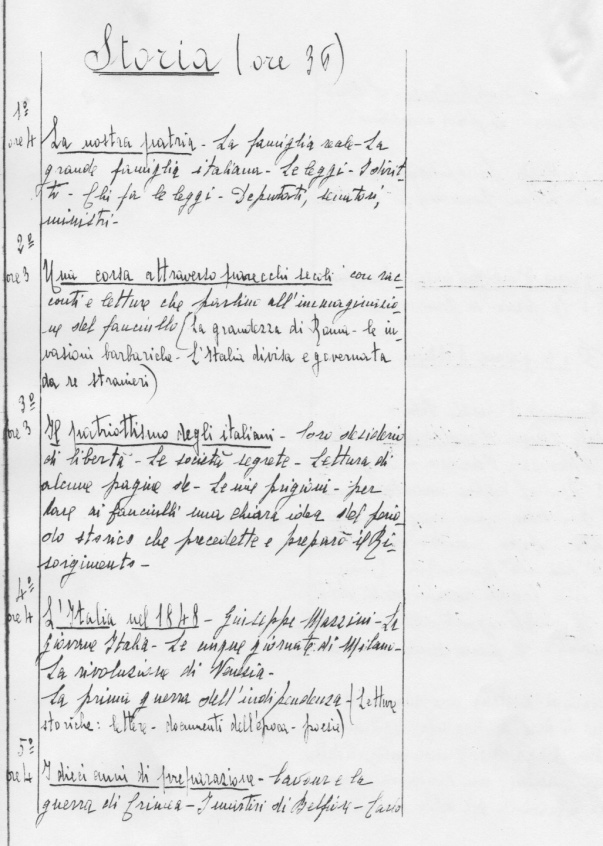 Storia (ore 36)
1º
ore 4 La nostra patria - La famiglia reale - La
grande famiglia italiana - Le leggi - I dirit-
ti - Chi fa le leggi - Deputati, senatori,
ministri -
2º
ore 3 Una corsa attraverso parecchi secoli con rac-
conti e letture che parlino all'immaginazio-
ne del fanciullo (la grandezza di Roma - le in-
vasioni barbariche - L'Italia divisa e governata
da re stranieri)
3º
ore 3 Il patriottismo degli italiani - loro desiderio
di libertà - Le società segrete - Lettura di
alcune pagine de - Le mie prigioni - per
dare ai fanciulli una chiara idea del perio-
do storico che precedette e preparò il Ri-
sorgimento -
4º
ore 4 L'Italia nel 1848 - Giuseppe Mazzini - La
giovane Italia - Le cinque giornate di Milano -
La rivoluzione di Venezia -
La prima guerra dell'indipendenza - (Letture
storiche: lettere - documenti dell'epoca - poesie)
5º
ore 4 I dieci anni di preparazione - Cavour e la
guerra di Crimea - I martiri di Belfiore - Carlo